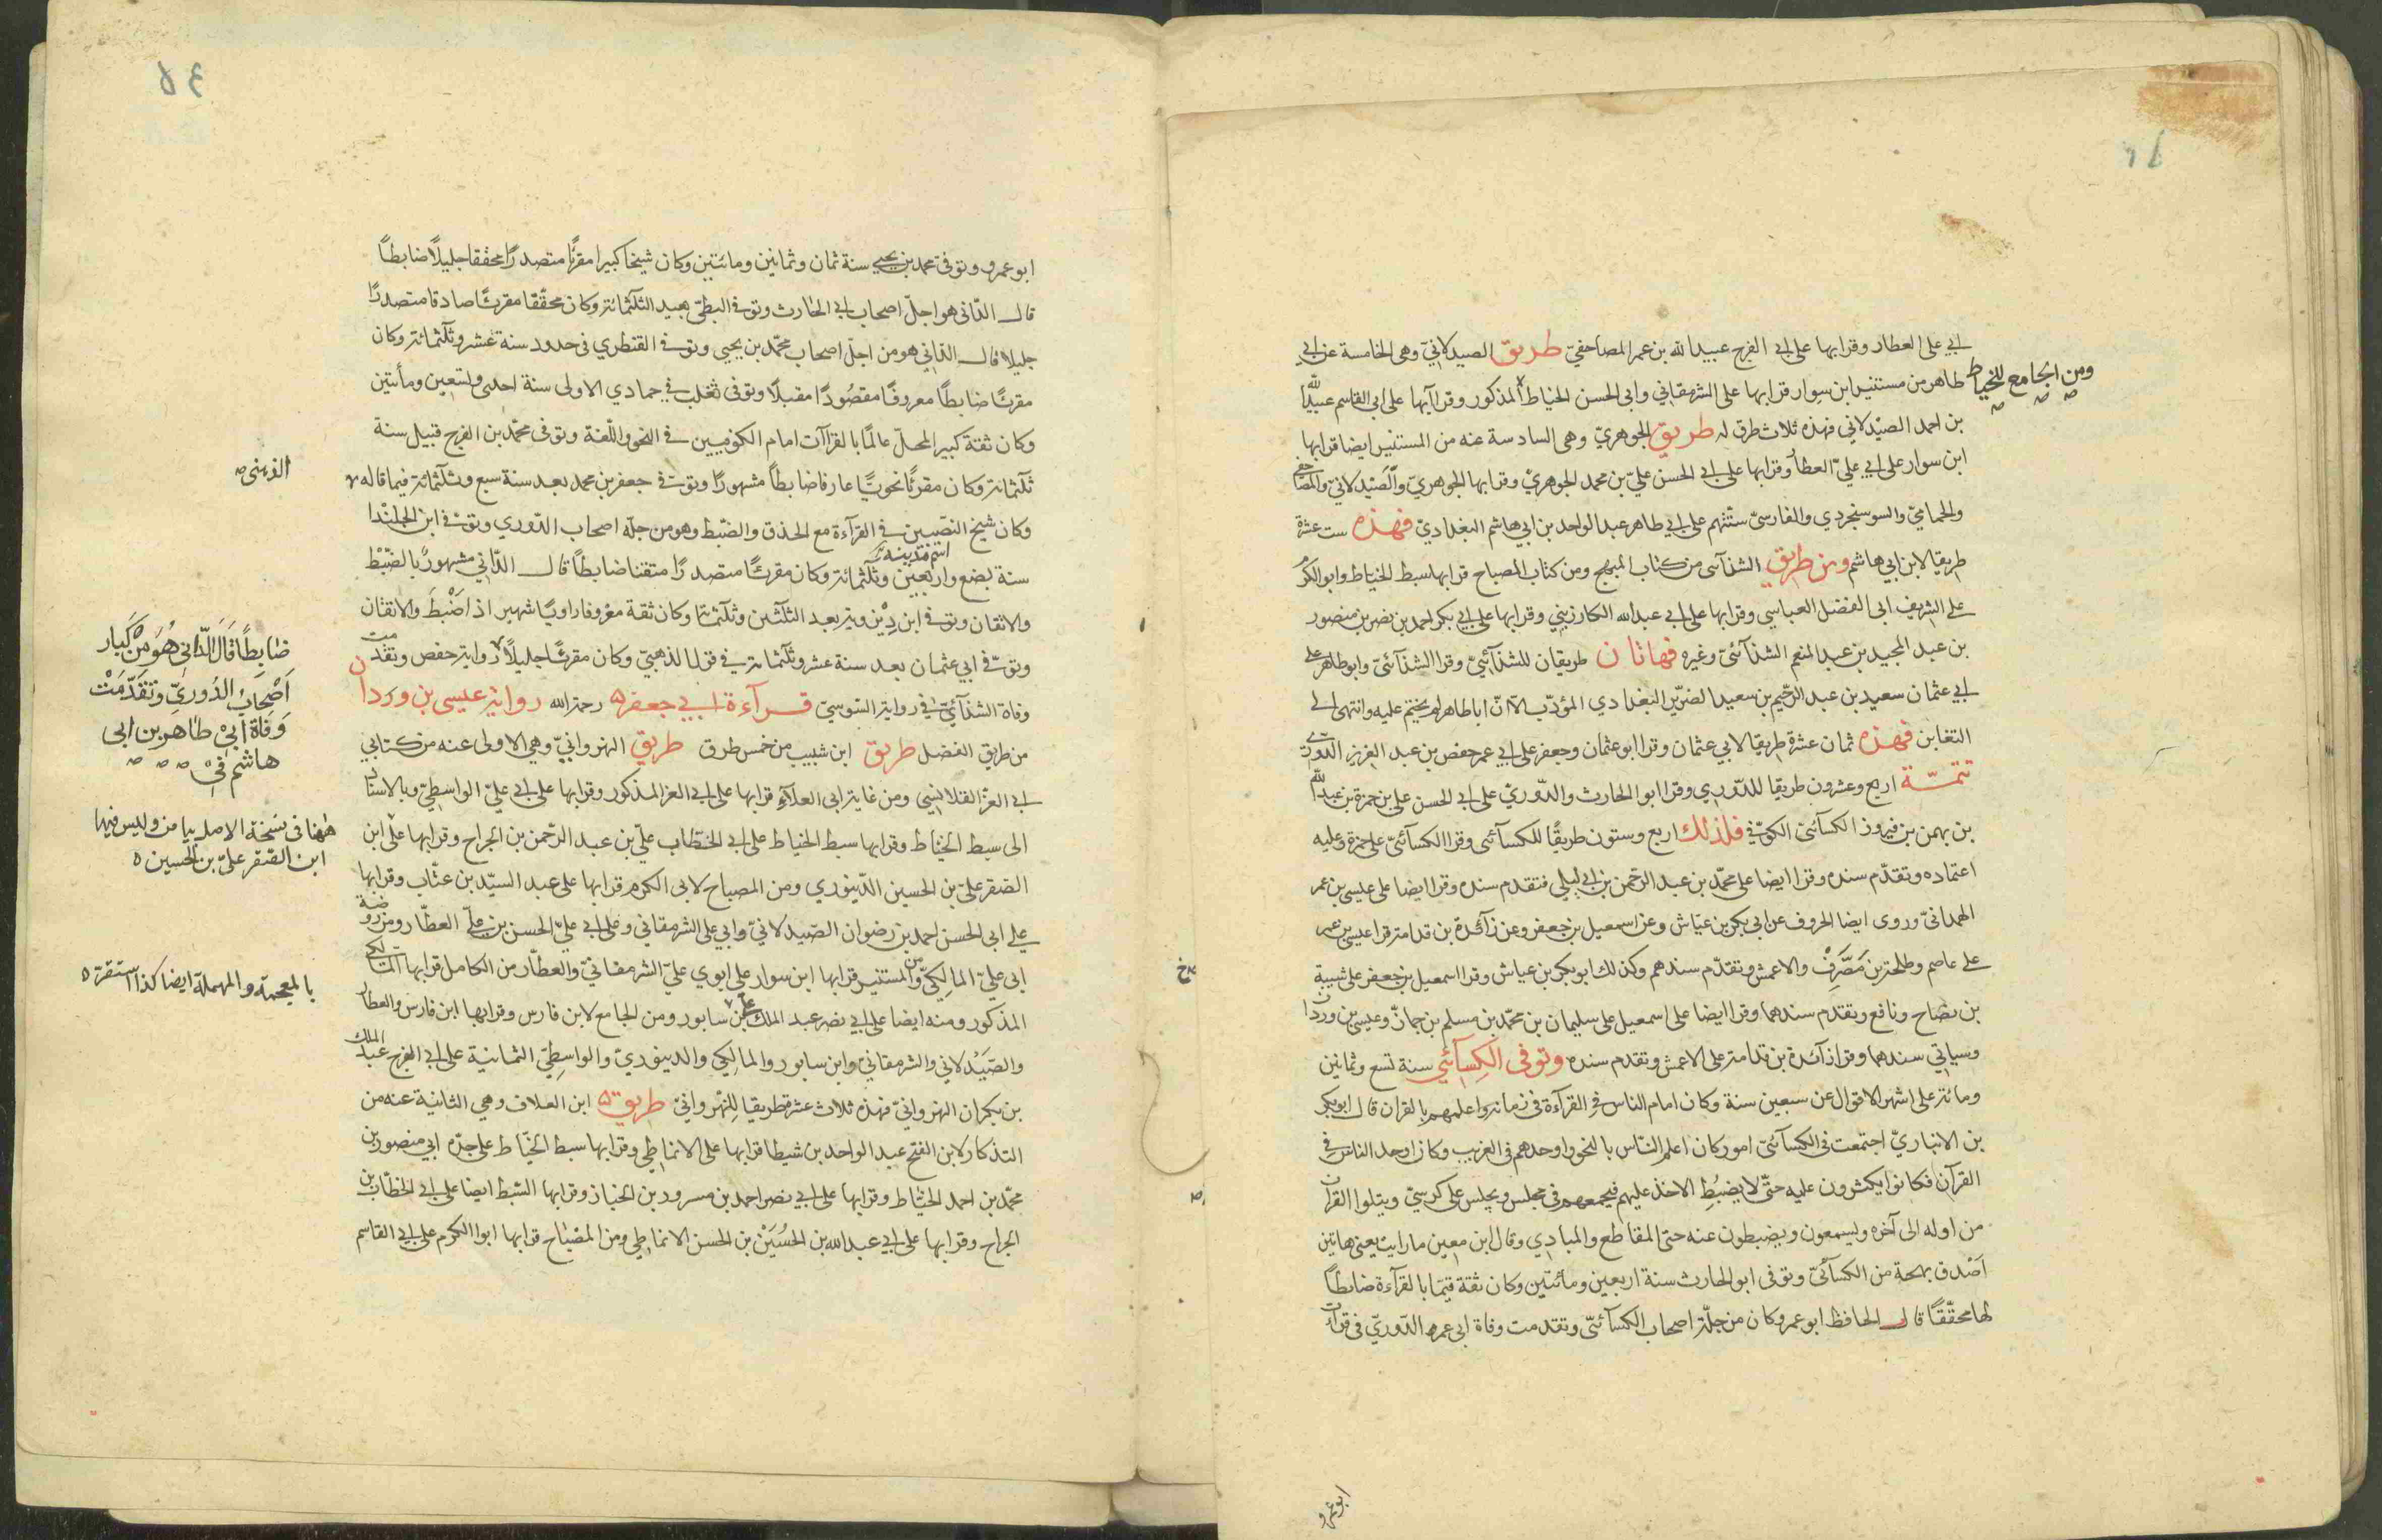 ابي على العطار وقرابها على ابى الفرج عبيد الله بن عمر المصاحفيّ طريق الصيدلانيّ وهى الخامسة عن ابي
طاهر من مستنير ابن سوار قرابها على الشرمقاني وابى الحسن الخياط المذكور وقراآبها على ابى القاسم عبيدالله
ومن الجامع للخياط
بن احمد الصيْدلاني فهذه ثلاث طرق له طريق الجوهريّ وهى السادسة عنه من المستنير ايضا قرابها
ابن سوار على ابي عليّ العطار وقرابها على ابي الحسن عليّ بن محمد الجوهريّ وقرابها الجوهريّ والصَيْدلانيّ والمصاحفي
والحماميّ والسوسنجردي والفارسيّ ستّتهم على ابي طاهر عبدالواحد بن ابي هاشم البغداديّ فهذه ست عشرة
طريقا لابن ابي هاشم ومن طريق الشذآئى من كتاب المبهج ومن كتاب المصباح قرابها سبط الخياط وابوالكرم
على الشريف ابى الفضل العباسي وقرابها على ابى عبدالله الكارزيني وقرابها على ابي بكر احمد بن نصر بن منصور
بن عبد المجيد بن عبد المنعم الشذآئىّ وغيره فهاتان طريقان للشذآئىّ وقرا الشذآئىّ وابوطاهر على
ابي عثمان سعيد بن عبد الرّحيم بن سعيد الضرير البغدادي المؤدّب الّا انّ اباطاهر لم يختم عليه وانتهى الى
التغابن فهذه ثمان عشرة طريقا لابي عثمان وقرا ابوعثمان وجعفر على ابي عمر حفص بن عبد العزيز الدّوريّ
تتمّة اربع وعشرون طريقا للدّوري وقرا ابوا الحارث والدّوريّ على ابى الحسن على بن حمزة بن عبدالله
بن بهمن بن فيروز الكسآئىّ الكوفيّ فلذلك اربع وستون طريقًا للكسآئى وقرا الكسآئىّ على حمزة وعليه
اعتماده وتقدّم سنده وقرا ايضا على محمّد بن عبد الرّحمن بن ابى ليلى فتقدم سنده وقرا ايضا على عيسى بن عمر
الهمدانىّ وروى ايضا الحروف عن ابى بكر بن عيّاش وعن اسمعيل بن جعفر وعن زآئدة بن قدامة وقرا عيسى بن عمر
على عاصم وطلحة بن مَصَرِّفٍ والاعمش وتقدّم سندهم وكذلك ابوبكر بن عياش وقرا اسمعيل بن جعفر على شيبة
بن نصاح ونافع وتقدم سندهما وقرا ايضا على اسمعيل على سليمان بن محمّد بن مسلم بن جمازّ وعيسى بن وردان
وسياتي سندهما وقرا زآئدة بن قدامة على الاعمش وتقدم سنده وتوفى الكِسآئىّ سنة تسع وثمانين
ومائة على اشهر الاقوال عن سبعين سنة وكان امام الناس فى القرآءة فى زمانه واعلمهم بالقران قال ابوبكر
بن الانباريّ اجتمعت فى الكسآئىّ امور كان اعلم النّاس بالنحو واوحدهم فى الغريب وكان اوحد الناس فى
القرآن فكانوا يكثرون عليه حتّى لا يضبُط الاخذ عليهم فيجمعهم فى مجلس ويجلس على كرسيّ ويتلوا القران
من اوله الى آخره ويسمعون ويضبطون عنه حتى المقاطع والمبادي وقال ابن معين ما رايت بعيني هاتين
اَصْدق بهجة من الكسآئىّ وتوفى ابو الحارث سنة اربعين ومأئتين وكان ثقة قيّما بالقرآءة ضابطاً
لها محقّقًا قال الحافظ ابوعمرو كان من جلّة اصحاب الكسآئىّ وتقدمت وفاة ابى عمر الدّوريّ فى قرآءة
ابوعمرو
ابوعمرو وتوفى محمد بن يحيى سنة ثمان وثمانين ومائتين وكان شيخا كبيرا مقرئًا متصدرًا محققا جليلًا ضابطاً
قال الدّانى هو اجلّ اصحاب ابي الحارث وتوفى البطىّ بعيد الثلثمائة وكان محقّقا مقرئًا صادقا متصدرًا
جليلا قال الدّانى هو من اجلّ اصحاب محمّد بن يحيى وتوفى القنطري فى حدود سنة عشر وثلثمائة وكان
مقرئًا ضابطاً معروفًا مقصُودًا مقبلًا وتوفى ثعلب فى جمادي الاولى سنة احدى وتسعين ومأئتين
وكان ثقة كبير المحلّ عالمًا بالقراآت امام الكوفيين فى النحو واللّغة وتوفى محمّد بن الفرج قبيل سنة
ثلثمائة وكان مقرئًا نحويًّا عارفا ضابطاً مشهورًا وتوفى جعفر بن محمد بعد سنة سبع وثلثمائة فيما قاله
الذهبى
وكان شيخ النصّيبين فى القرآءة مع الحذق والضّبط وهو من جلّه اصحاب الدّوري وتوفى ابن الجلندا
سنة بضع واربعين وثلثمائة وكان مقرئًا متصدرًا متقنا ضابطاً قال الدّانى مشهورٌ بالضّبْط
والاتقان وتوفى ابن دِيْزويه بعد الثلثين وثلثمائة وكان ثقة معروفا راويًا شهير اذا ضْبطَ والاتقان
وتوفّى ابي عثمان بعد سنة عشر وثلثمائة فى قول الذهبىّ وكان مقرئًا جليلًا رواية حفص وتقدمت
ضابطًا قَالَ الدّانى هُوَ مِنْ كَبَار
اَصْحَابُ الدُوريِّ وتَقَدَّمَتْ
وَفَاة ابىْ طاهَر بن ابى
هاشم فىْ
وفاة الشذآئىّ فى رواية السّوسىّ قرآءة ابي جعفر رحمة الله رواية عيسى بن وردان
من طريق الفضل طريق ابن شبيب من خمس طرق طريق النهروانيّ وهى الاولى عنه من كتابي
ابي العزّ القلانسيّ ومن غاية ابى العلآء قرابها على ابي العز المذكور وقرابها على ابي عليّ الواسطيّ وبالاسناد
الى سبط الخيّاط وقرابها سبط الخياط على ابى الخطّاب عليّ بن عبد الرّحمن بن الجراح وقرابها على ابن
هٰهنا فى نسخة الاصل بياض وليس فيها
ابن الصقر علىّ بن الحسين
الصّقر علىّ بن الحسين الدّينوري ومن المصباح لابى الكرم قرابها على عبد السيّد بن عتّاب وقرابها
على ابى الحسن احمد بن رضوان الصّيدلانىّ وابي على الشرمقاني وعلى ابي علىّ الحسن بن علىّ العطّار ومن روضة
ابى علىّ المالِكىّ والمستنير قرابها ابن سوار على ابوي علىّ الشرمقانىّ والعطّار من الكامل قرابها المالكى
بالمعجمة والمهملة ايضا كذا استقرّه
المذكور ومنه ايضا على ابي نصر عبد الملك بن سابور ومن الجامع لابن فارس وقرابها ابن فارس والعطار
والصّيَدلاني والشرمقانيّ وابن سابور والمالِكي والدينوريّ والواسِطِىّ الثمانية على ابى الفرج عبد الملك
بن بكران النهروانىّ فهذه ثلاث عشرة طريقا لِلنهْروانيّ طريق ابن العلاف وهي الثانية عنه من
التذكار لابن الفتح عبد الواحد بن شيطا قرابها على الانماطي وقرابها سبط الخيّاط على جدّه ابي منصور بن
محمّد بن احمد الخيّاط وقرابها على ابي نصر احمد بن مسرور بن الخباز وقرابها السّبط ايضا على ابي الخطّاب بن
الجراح وقرابها على ابي عبد الله بن الحُسَيْن بن الحسن الانماطي ومن المصباح قرابها ابوا الكرم على ابي القاسم